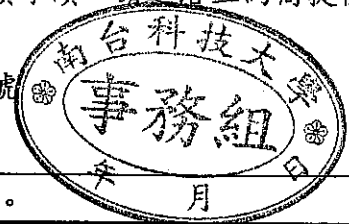 南台科技大學
事務組
年 月 日
號
。